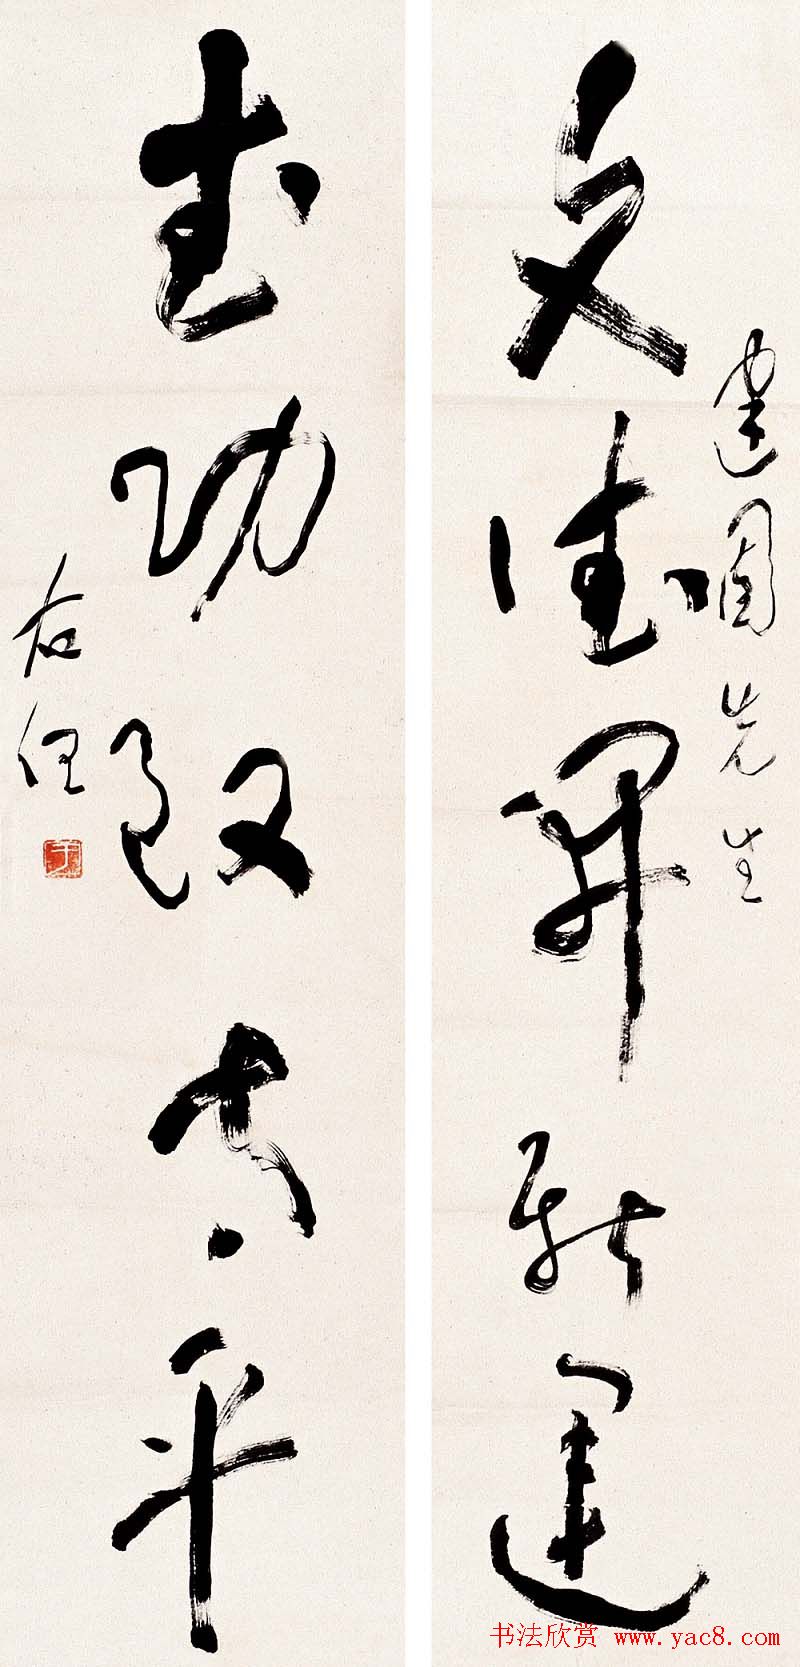 建周先生
文德开新运
武功致太平
右任
于
书法欣赏 www.yac8.com